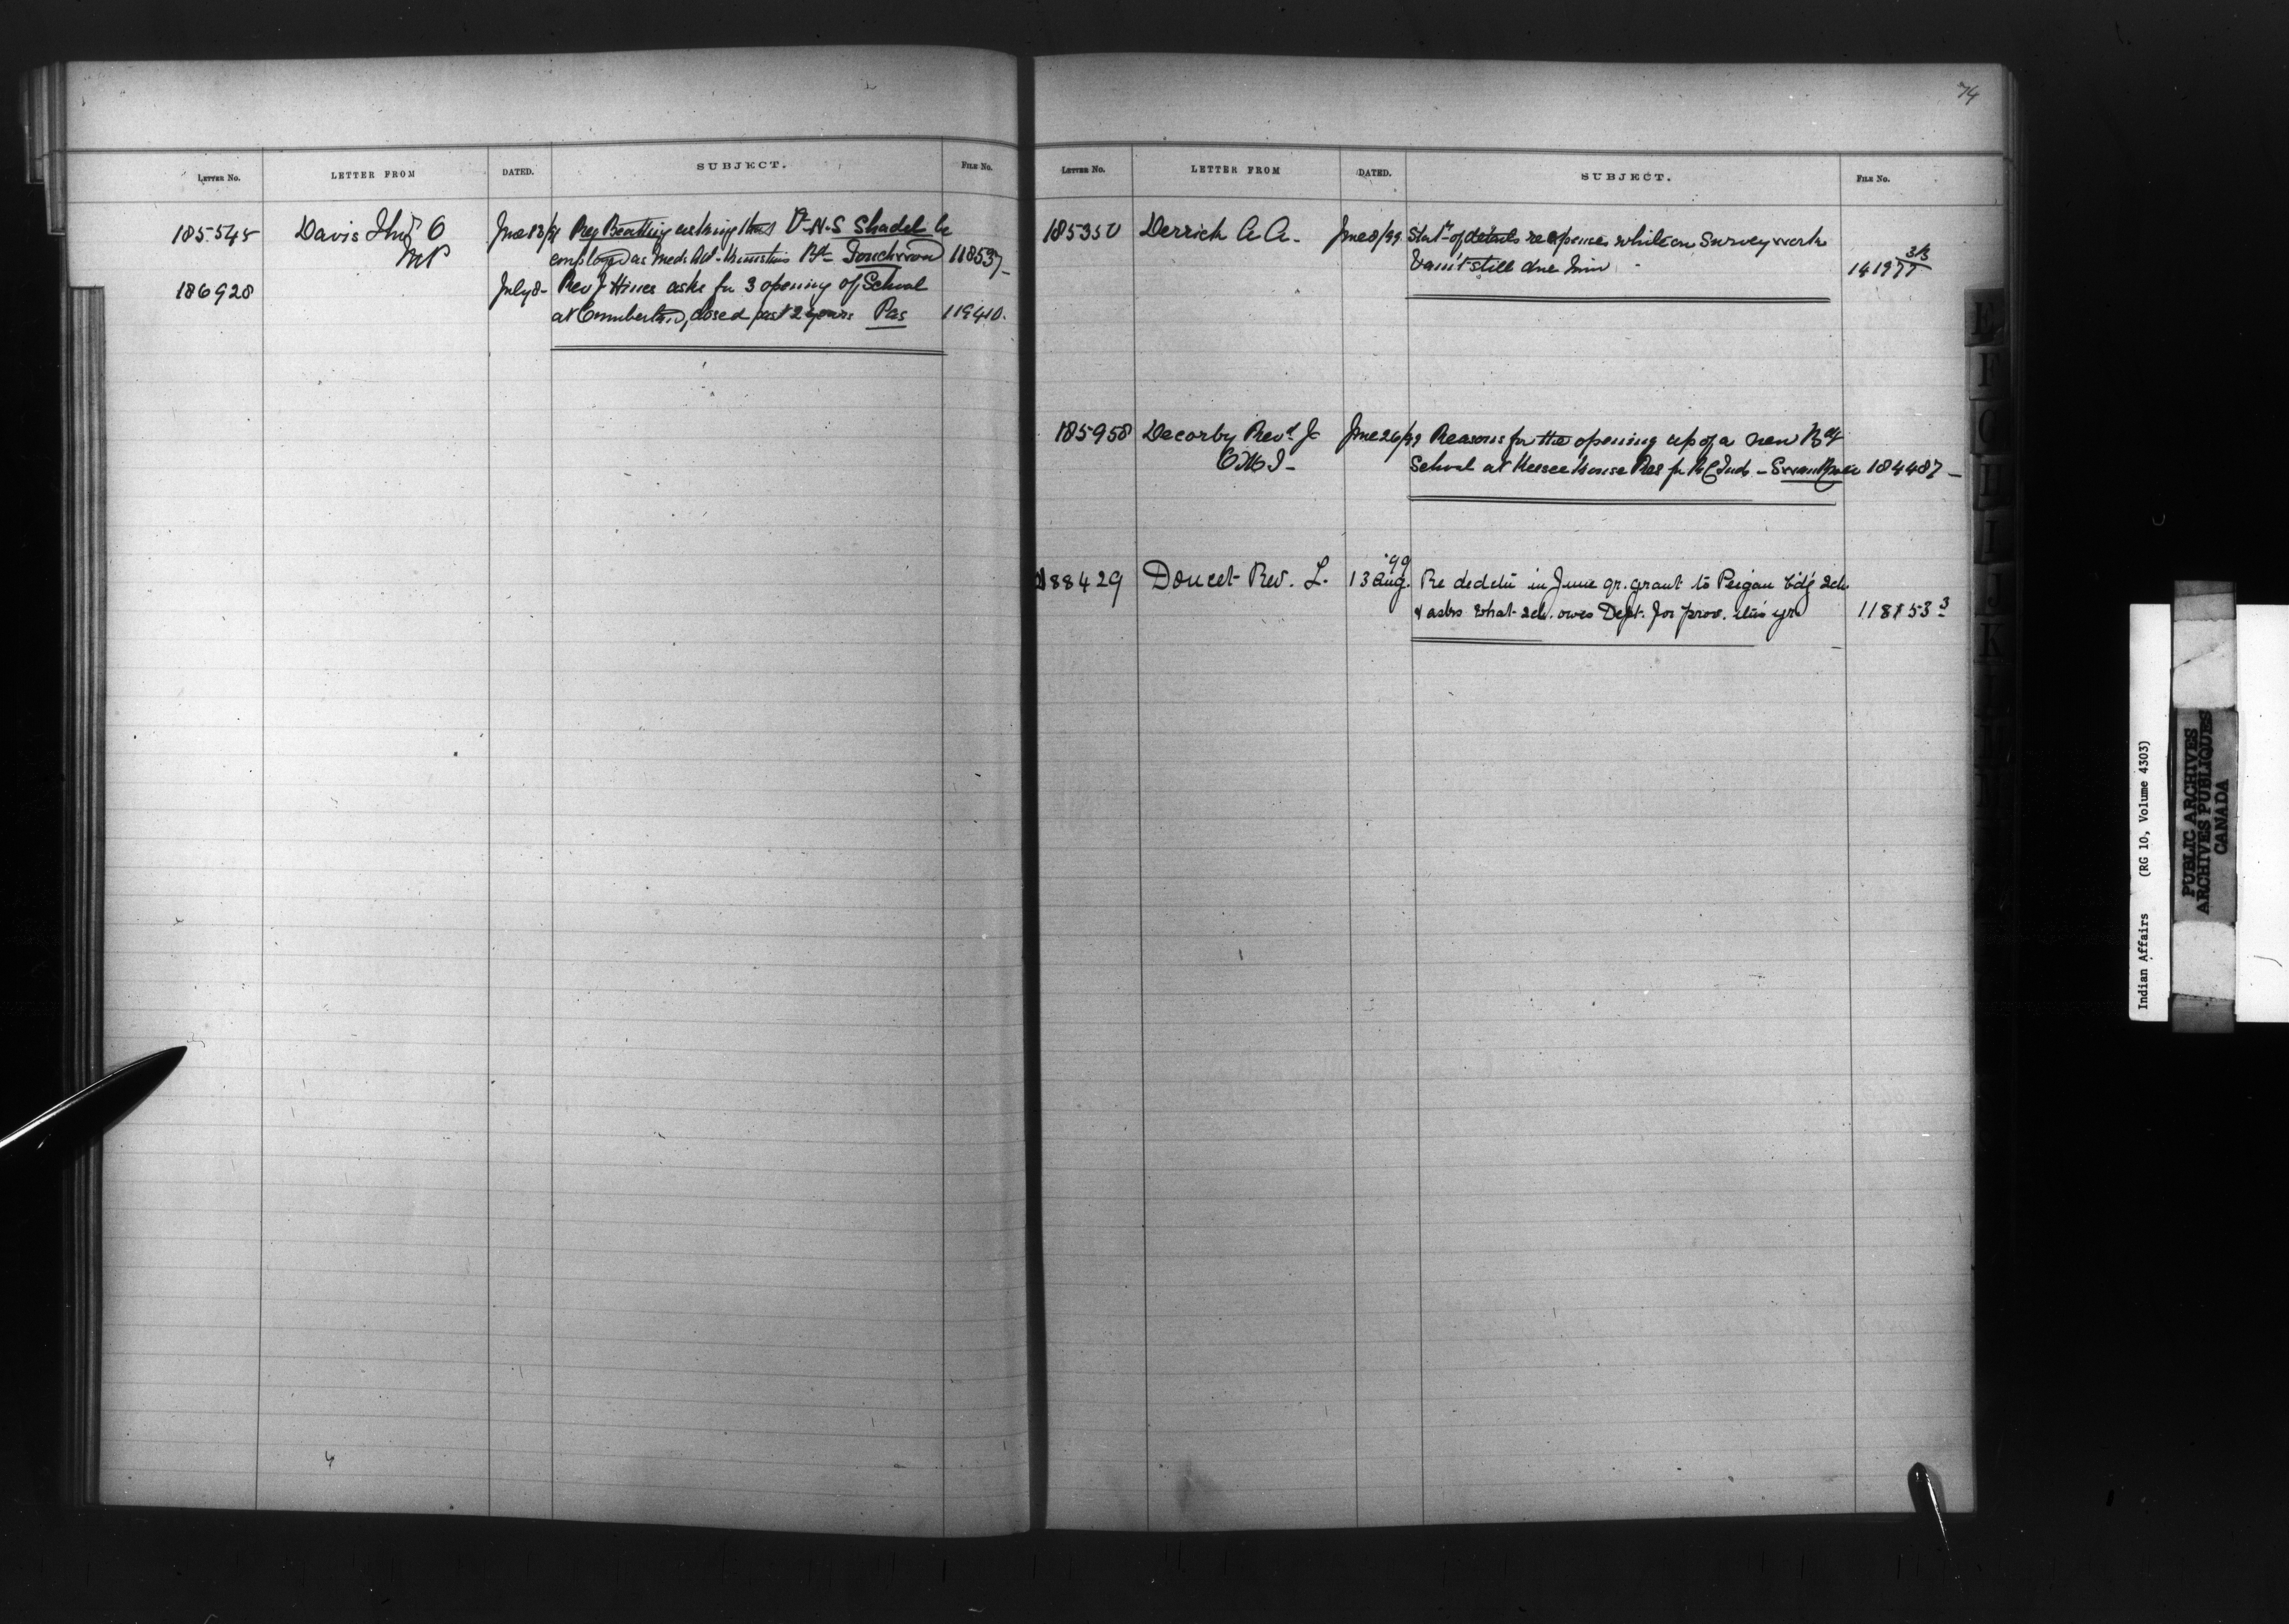 74
LETTER NO. LETTER FROM DATED. SUBJECT. FILE NO.
185545 Davis Thos O June 13/99 Reg Beatty asking that V-N-S Shadel be
MP employed as Meds Att- Muscstins Bd- Touchwood 118537-
186928 July 8- Rev J Hines asks for 3 opening of School
at Cumberland, closed past 2 years Pas 119410.
LETTER NO. LETTER FROM DATED. SUBJECT. FILE NO.
185350 Derrick A A. June 8/99 Statmt of details re expenses while on Survey work
& am't still due him 141977 3/3
185958 Decorby Revd J June 26/99 Reasons for the opening up of a new Bdg
OMI- School at Keesee House Res for RC Inds - Swan River 184487-
188429 Doucet Rev. L. 13 Aug. '99 Re dedctn in June qr. grant to Peigan bdg sch
& asks what sch. owes Dept. for prov. this yr. 118153 3
Indian Affairs (RG 10, Volume 4303)
PUBLIC ARCHIVES
ARCHIVES PUBLIQUES
CANADA
E
F
G
H
I
J
K
L
M